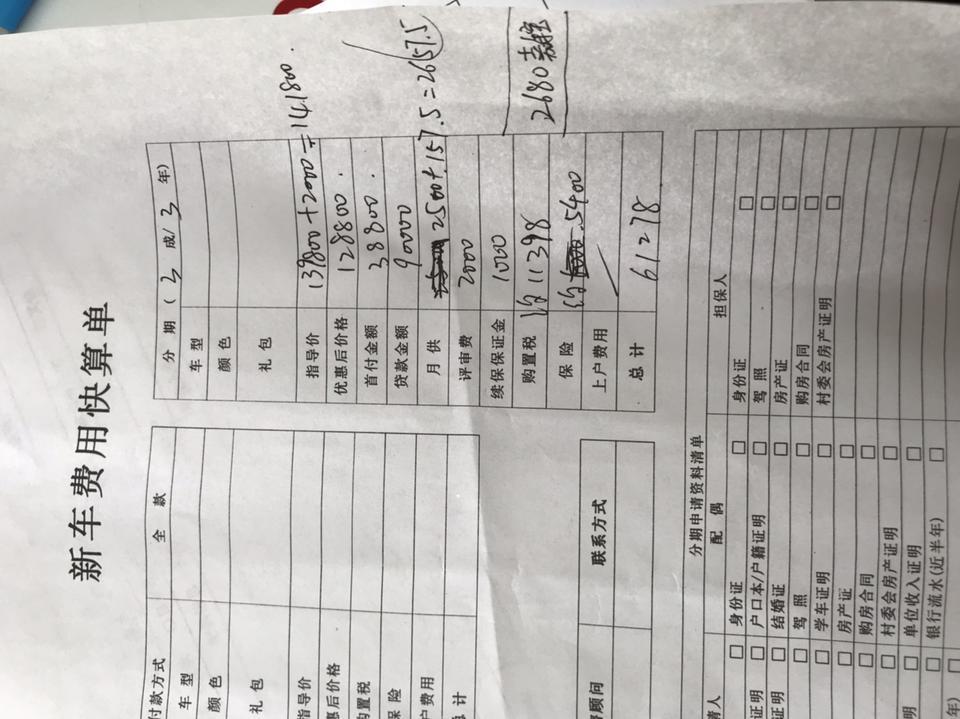 新车费用快算单
付款方式 全 款 分 期 (3 成/3 年)
车 型 车 型
颜 色 颜 色
礼 包 礼 包
指导价 指导价 139800+2000=141800.
惠后价格 优惠后价格 128800.
购置税 首付金额 38800.
保 险 贷款金额 90000
户费用 月 供 2500+157.5=2657.5
总 计 评审费 2000
续保保证金 1000
购置税 约11398
保 险 约 5400
上户费用
总 计 61278
2680
顾问 联系方式
分期申请资料清单
请人 配 偶 担保人
□ 身份证 □ 身份证 □
证明 □ 户口本/户籍证明 □ 驾 照 □
证明 □ 结婚证 □ 房产证 □
□ 驾 照 □ 购房合同 □
□ 学车证明 □ 村委会房产证明 □
□ 房产证 □
□ 购房合同 □
□ 村委会房产证明 □
明 □ 单位收入证明 □
□ 银行流水(近半年) □
年) □